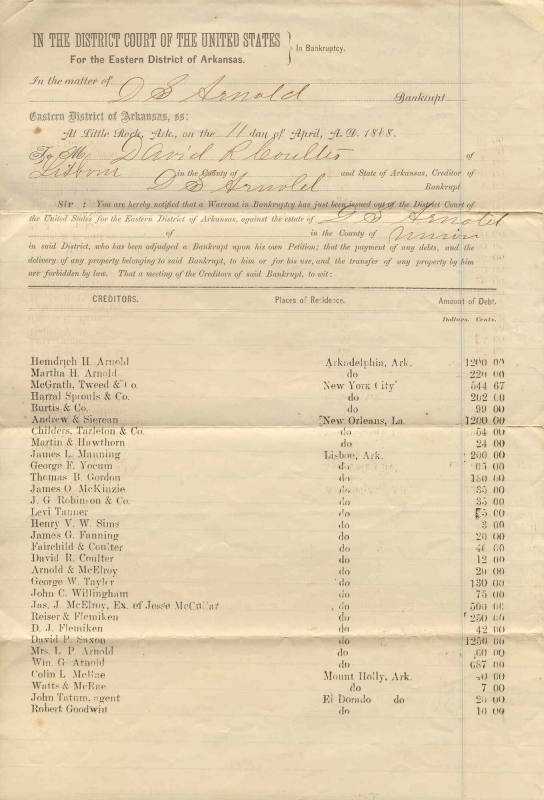 IN THE DISTRICT COURT OF THE UNITED STATES
For the Eastern District of Arkansas.
In Bankruptcy.
In the matter of D S Arnold Bankrupt
Eastern District of Arkansas, ss:
At Little Rock, Ark., on the 11 day of April, A. D. 1868.
To Mr David R Coulter of
Lisbon in the County of and State of Arkansas, Creditor of
D S Arnold Bankrupt
Sir : You are hereby notified that a Warrant in Bankruptcy has just been issued out of the District Court of
the United States for the Eastern District of Arkansas, against the estate of D S Arnold
of in the County of Union
in said District, who has been adjudged a Bankrupt upon his own Petition; that the payment of any debts, and the
delivery of any property belonging to said Bankrupt, to him or for his use, and the transfer of any property by him
are forbidden by law. That a meeting of the Creditors of said Bankrupt, to wit:
CREDITORS. Places of Residence. Amount of Debt.
Dollars. Cents.
Hemdrich H. Arnold Arkadelphia, Ark. 1200 00
Martha H. Arnold do 220 00
McGrath, Tweed & Co. New York City 544 67
Harral Sprouls & Co. do 202 00
Burtis & Co. do 99 00
Andrew & Sierean New Orleans, La. 1200 00
Childers, Tarleton & Co. do 54 00
Martin & Hawthorn do 24 00
James L. Manning Lisboe, Ark. 200 00
George F. Yocum do 00
Thomas B. Gordon do 180 00
James O. McKinzie do 35 00
J. G. Robinson & Co. do 35 00
Levi Tanner do 00
Henry V. W. Sims do 3 00
James G. Fanning do 20 00
Fairchild & Coulter do 00
David R. Coulter do 12 00
Arnold & McElroy do 20 00
George W. Tayler do 130 00
John C. Willingham do 75 00
Jas. J. McElroy, Ex. of Jesse McCullar do 500 00
Reiser & Flemiken do 250 00
D. J. Flemiken do 42 00
David P. Saxon do 1250 00
Mrs. L. P. Arnold do 60 00
Wm. G. Arnold do 687 00
Colin L. McRae Mount Holly, Ark. 00
Watts & McRae do 7 00
John Tatum, agent El Dorado do 20 00
Robert Goodwin do 10 00